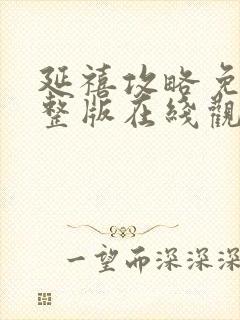 延禧攻略免
整版在线觀
一望而深深深